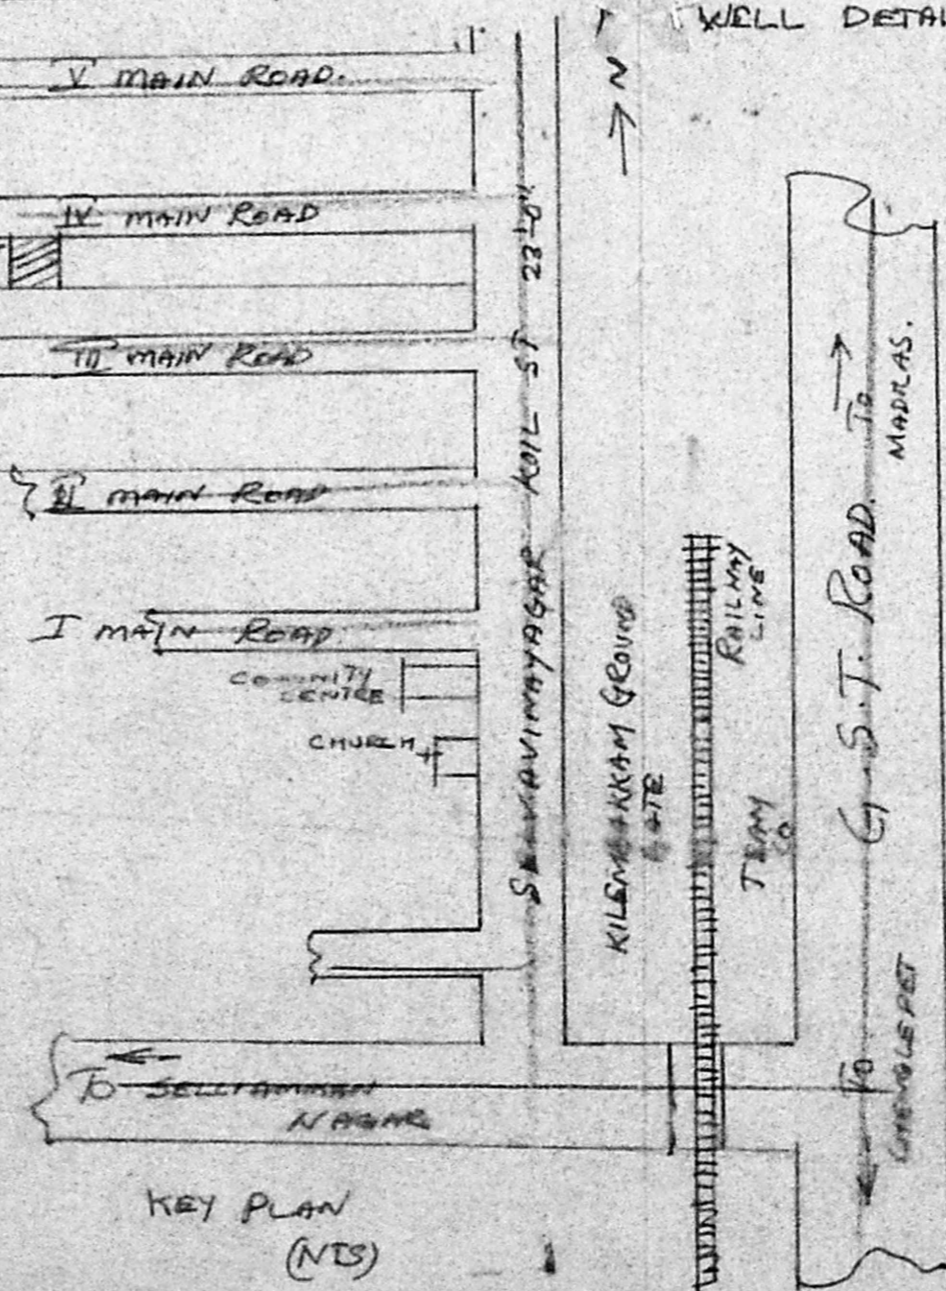 WELL DETAI
V MAIN ROAD.
N
IV MAIN ROAD
23'-0"
III MAIN ROAD
II MAIN ROAD
I MAIN ROAD
COMUNITY
CENTRE
CHURCH
SELVAVINAYAGAR KOIL ST
KILEMBAKKAM GROUND
GATE
RAILWAY
LINE
TEAM
CO
G.S.T. ROAD.
TO
MADRAS.
TO
CHENGLEPET
TO SELLIAMMAN
NAGAR
KEY PLAN
(NTS)